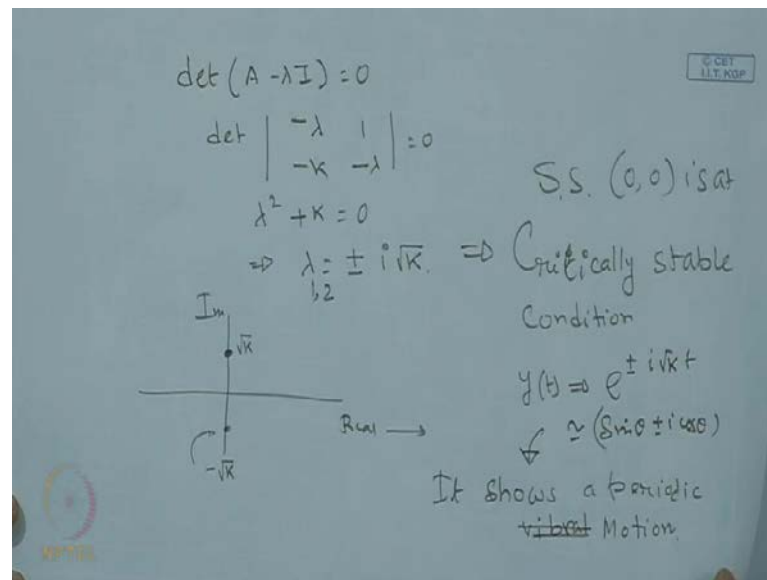 © CET
I.I.T. KGP
det (A - λI) = 0
det | -λ 1 | = 0
| -K -λ |
λ² + K = 0
⇒ λ1,2 = ± i√K.
S.S. (0,0) is at
⇒ Critically stable
Condition
y(t) ⇒ e^{± i√K t}
≃ (Sinθ ± i cosθ)
It shows a periodic
vibrat Motion.
Im
√K
Real →
-√K
NPTEL